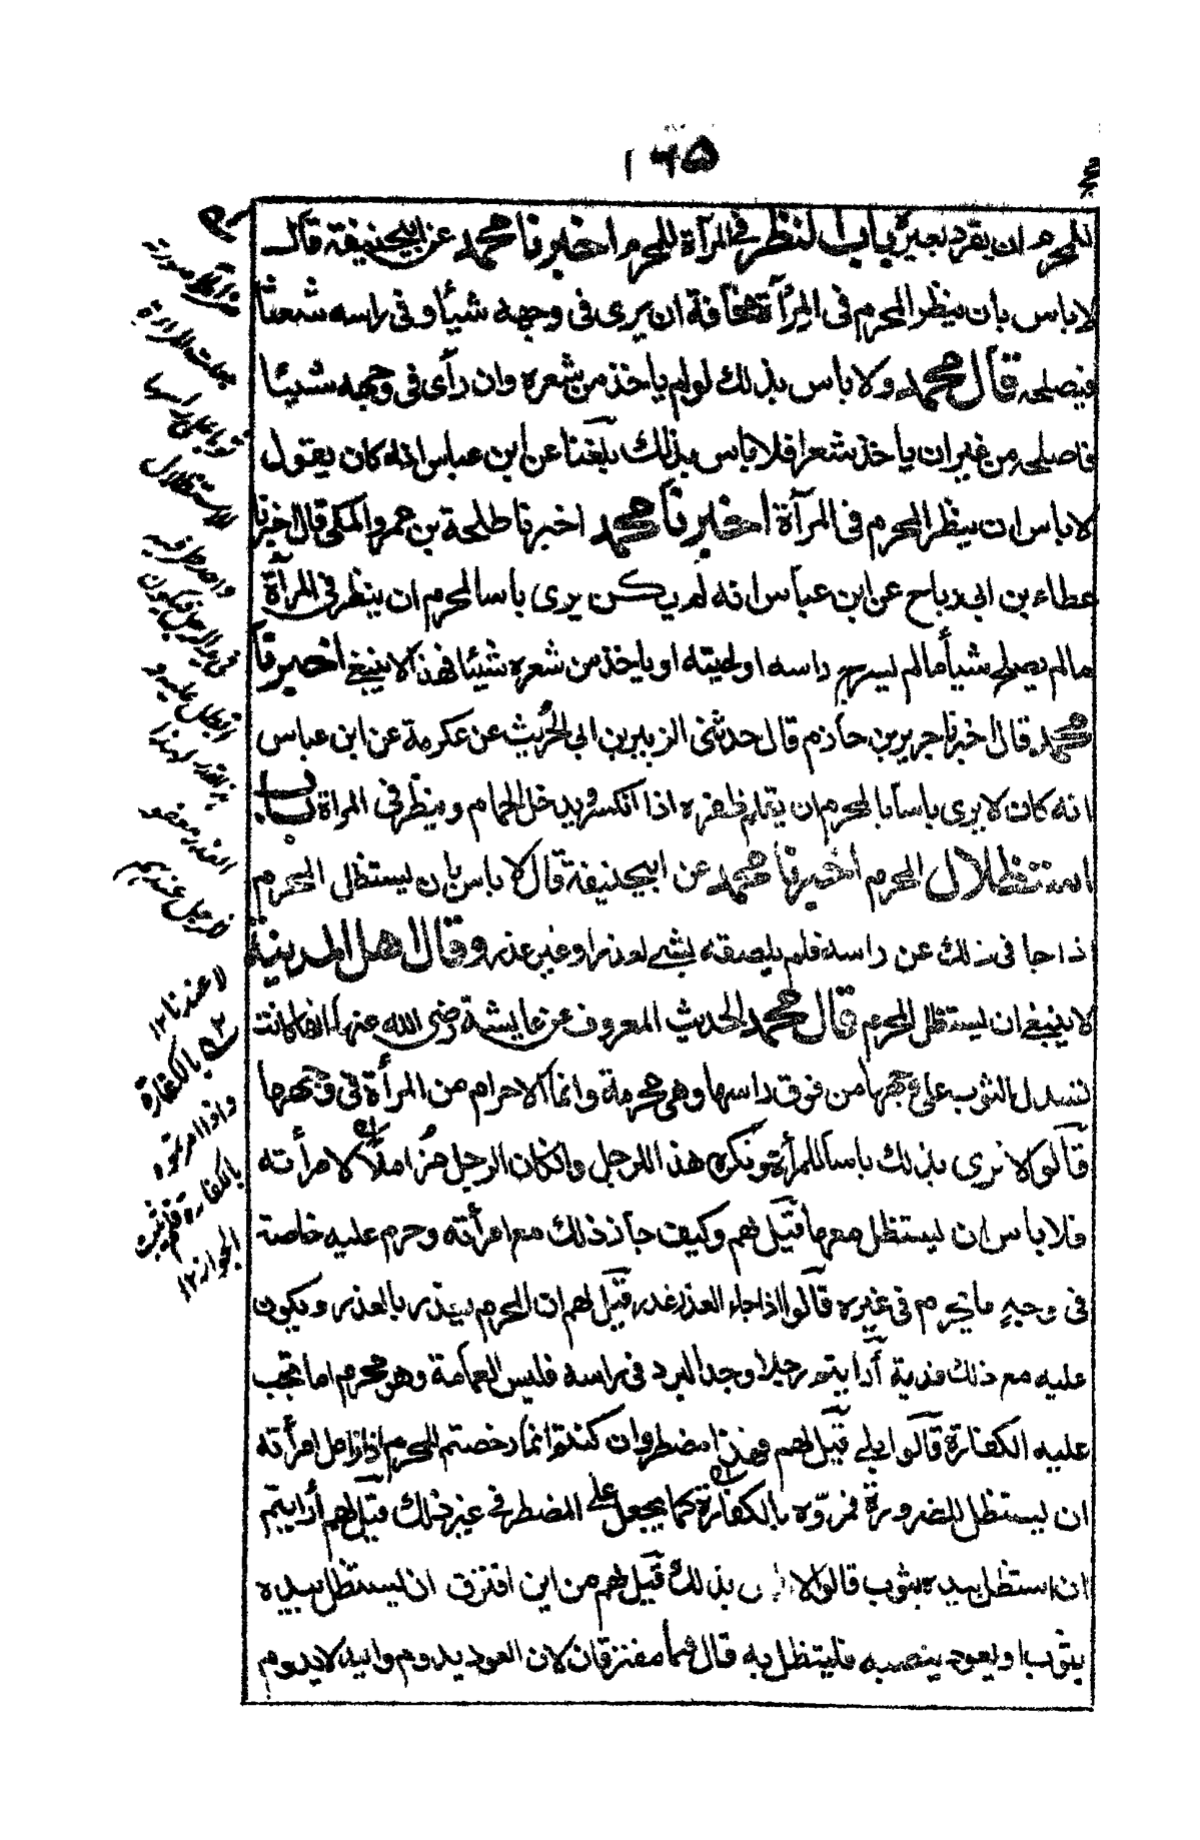 ١٦٥
للمحرم ان يقرد بعيره باب النظر في المرآة للمحرم اخبرنا محمد عن ابيحنيفة قال
لا باس بان ينظر المحرم فى المرآة مخافة ان يرى فى وجهه شيئا وفى راسه شعثا
فيصلحه قال محمد ولا باس بذلك لو لم ياخذ من شعره وان رأى فى وجهه شيئا
فاصلحه من غير ان ياخذ شعرا فلا باس بذلك بلغنا عن ابن عباس انه كان يقول
لا باس ان ينظر المحرم فى المرآة اخبرنا محمد اخبرنا طلحة بن عمرو المكى قال اخبرنا
عطاء بن ابى رباح عن ابن عباس انه لم يكن يرى باسا للمحرم ان ينظر فى المرآة
ما لم يصلح شيأ ما لم يسرح راسه او لحيته او ياخذ من شعره شيئا فهذا لا ينبغي اخبرنا
محمد قال اخبرنا جرير بن حازم قال حدثنى الزبير بن ابى الحريث عن عكرمة عن ابن عباس
انه كان لا يرى باسا بالمحرم ان يقلم ظفره اذا انكسر ويدخل الحمام وينظر فى المراة باب
استظلال المحرم اخبرنا محمد عن ابيحنيفة قال لا باس بان يستظل المحرم
اذا جا فى ذلك عن راسه فلم يلصقه بشيء لعذر او غير عذر وقال اهل المدينة
لا ينبغي ان يستظل المحرم قال محمد الحديث المعروف عن عايشة رضى الله عنها انها كانت
تسدل الثوب على وجهها من فوق راسها وهى محرمة وانما الاحرام من المرأة فى وجهها
قالوا لا نرى بذلك باسا للمرأة ونكره هذا للرجل وان كان الرجل مزاملا لامرأته
فلا باس ان يستظل معها قيل لهم وكيف جاز ذلك مع امرأته وحرم عليه خاصة
فى وجه ما يحرم فى غيره قالوا اذا جاء العذر عذر قيل لهم ان المحرم يعذر بالعذر ويكون
عليه مع ذلك فدية أرأيتم رجلا وجد البرد فى راسه فلبس العمامة وهو محرم اما تجب
عليه الكفارة قالوا بلى قيل لهم فهذا مضطر وان كنتم انما رخصتم للمحرم اذا زامل امرأته
ان يستظل للضرورة فمروه بالكفارة كما يجعل على المضطر فى غير ذلك قيل لهم أرأيتم
ان استظل بيده بثوب قالوا لا بذلك قيل لهم من اين افترق ان يستظل بيده
بثوب او بعود ينصبه فليتظل به قال هما مفترقان لان العود يدوم واليد لا يدوم
صورته
جعلت المرأة
ثوبا على راسها
للاستظلال
لا عندنا ١٢
بالكفارة
واذا امرتموه
بالكفارة فقد ثبت
الجواز ١٢